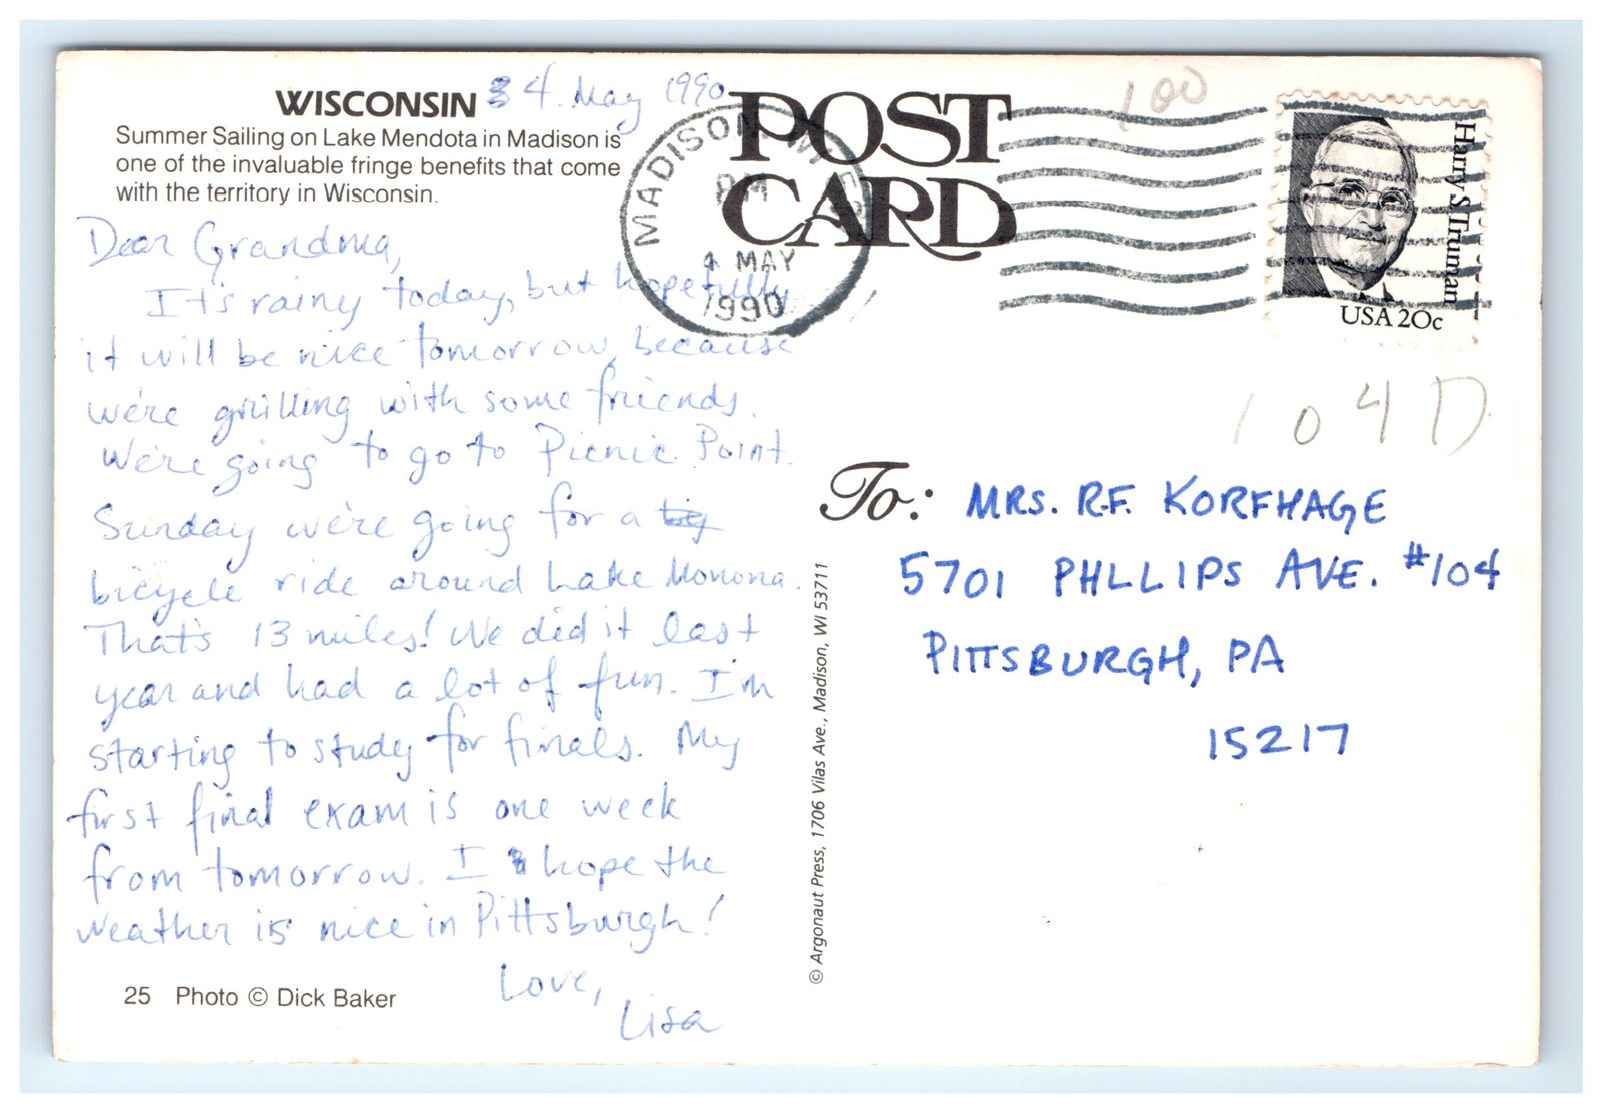 WISCONSIN 4. May 1990
Summer Sailing on Lake Mendota in Madison is
one of the invaluable fringe benefits that come
with the territory in Wisconsin.
POST
CARD
MADISON, WI
PM
4 MAY
1990
100
Harry S Truman
USA 20c
104D
Dear Grandma,
It's rainy today, but hopefully
it will be nice tomorrow, because
we're grilling with some friends.
We're going to go to Picnic Point.
Sunday we're going for a big
bicycle ride around Lake Monona.
That's 13 miles! We did it last
year and had a lot of fun. I'm
starting to study for finals. My
first final exam is one week
from tomorrow. I hope the
weather is nice in Pittsburgh!
Love,
Lisa
25 Photo © Dick Baker
© Argonaut Press, 1706 Vilas Ave., Madison, WI 53711
To: MRS. R.F. KORFHAGE
5701 PHLLIPS AVE. #104
PITTSBURGH, PA
15217